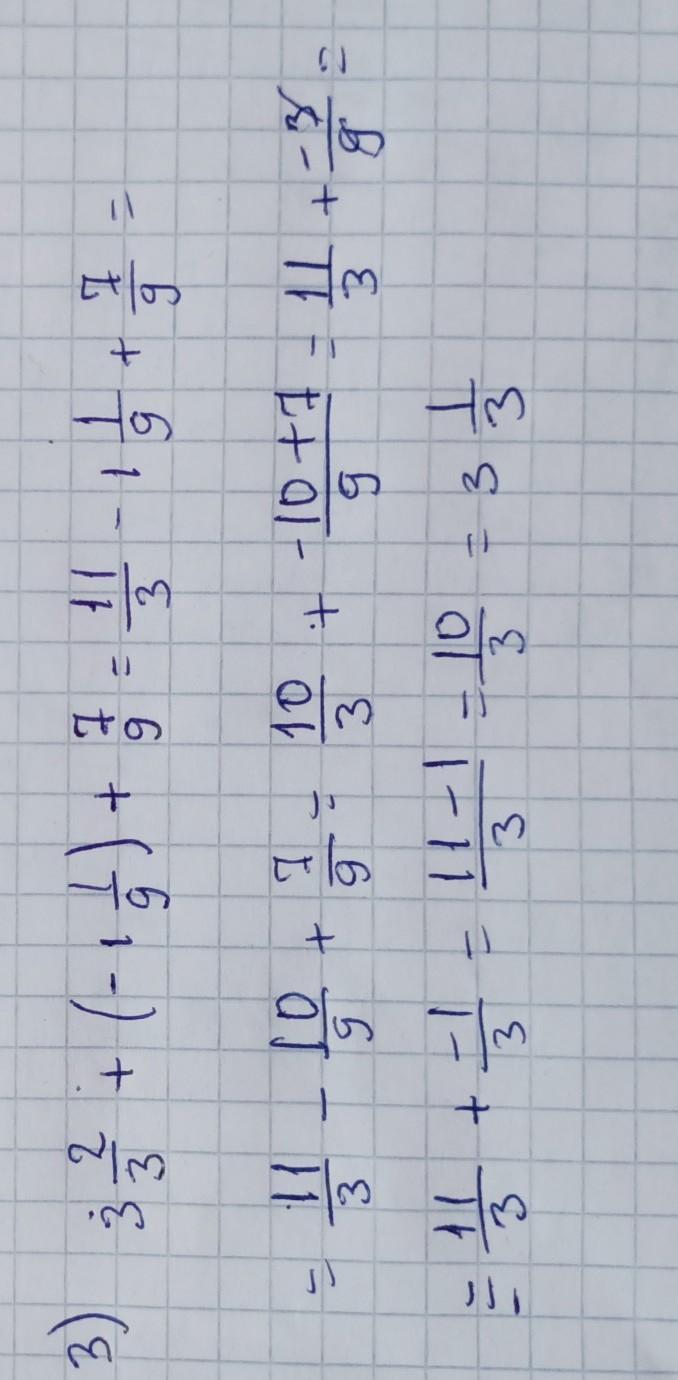 3) 3 2/3 + (-1 1/9) + 7/9 = 11/3 - 1 1/9 + 7/9 =
= 11/3 - 10/9 + 7/9 = 10/3 + -10+7/9 = 11/3 + -3/9 =
= 11/3 + -1/3 = 11-1/3 = 10/3 = 3 1/3